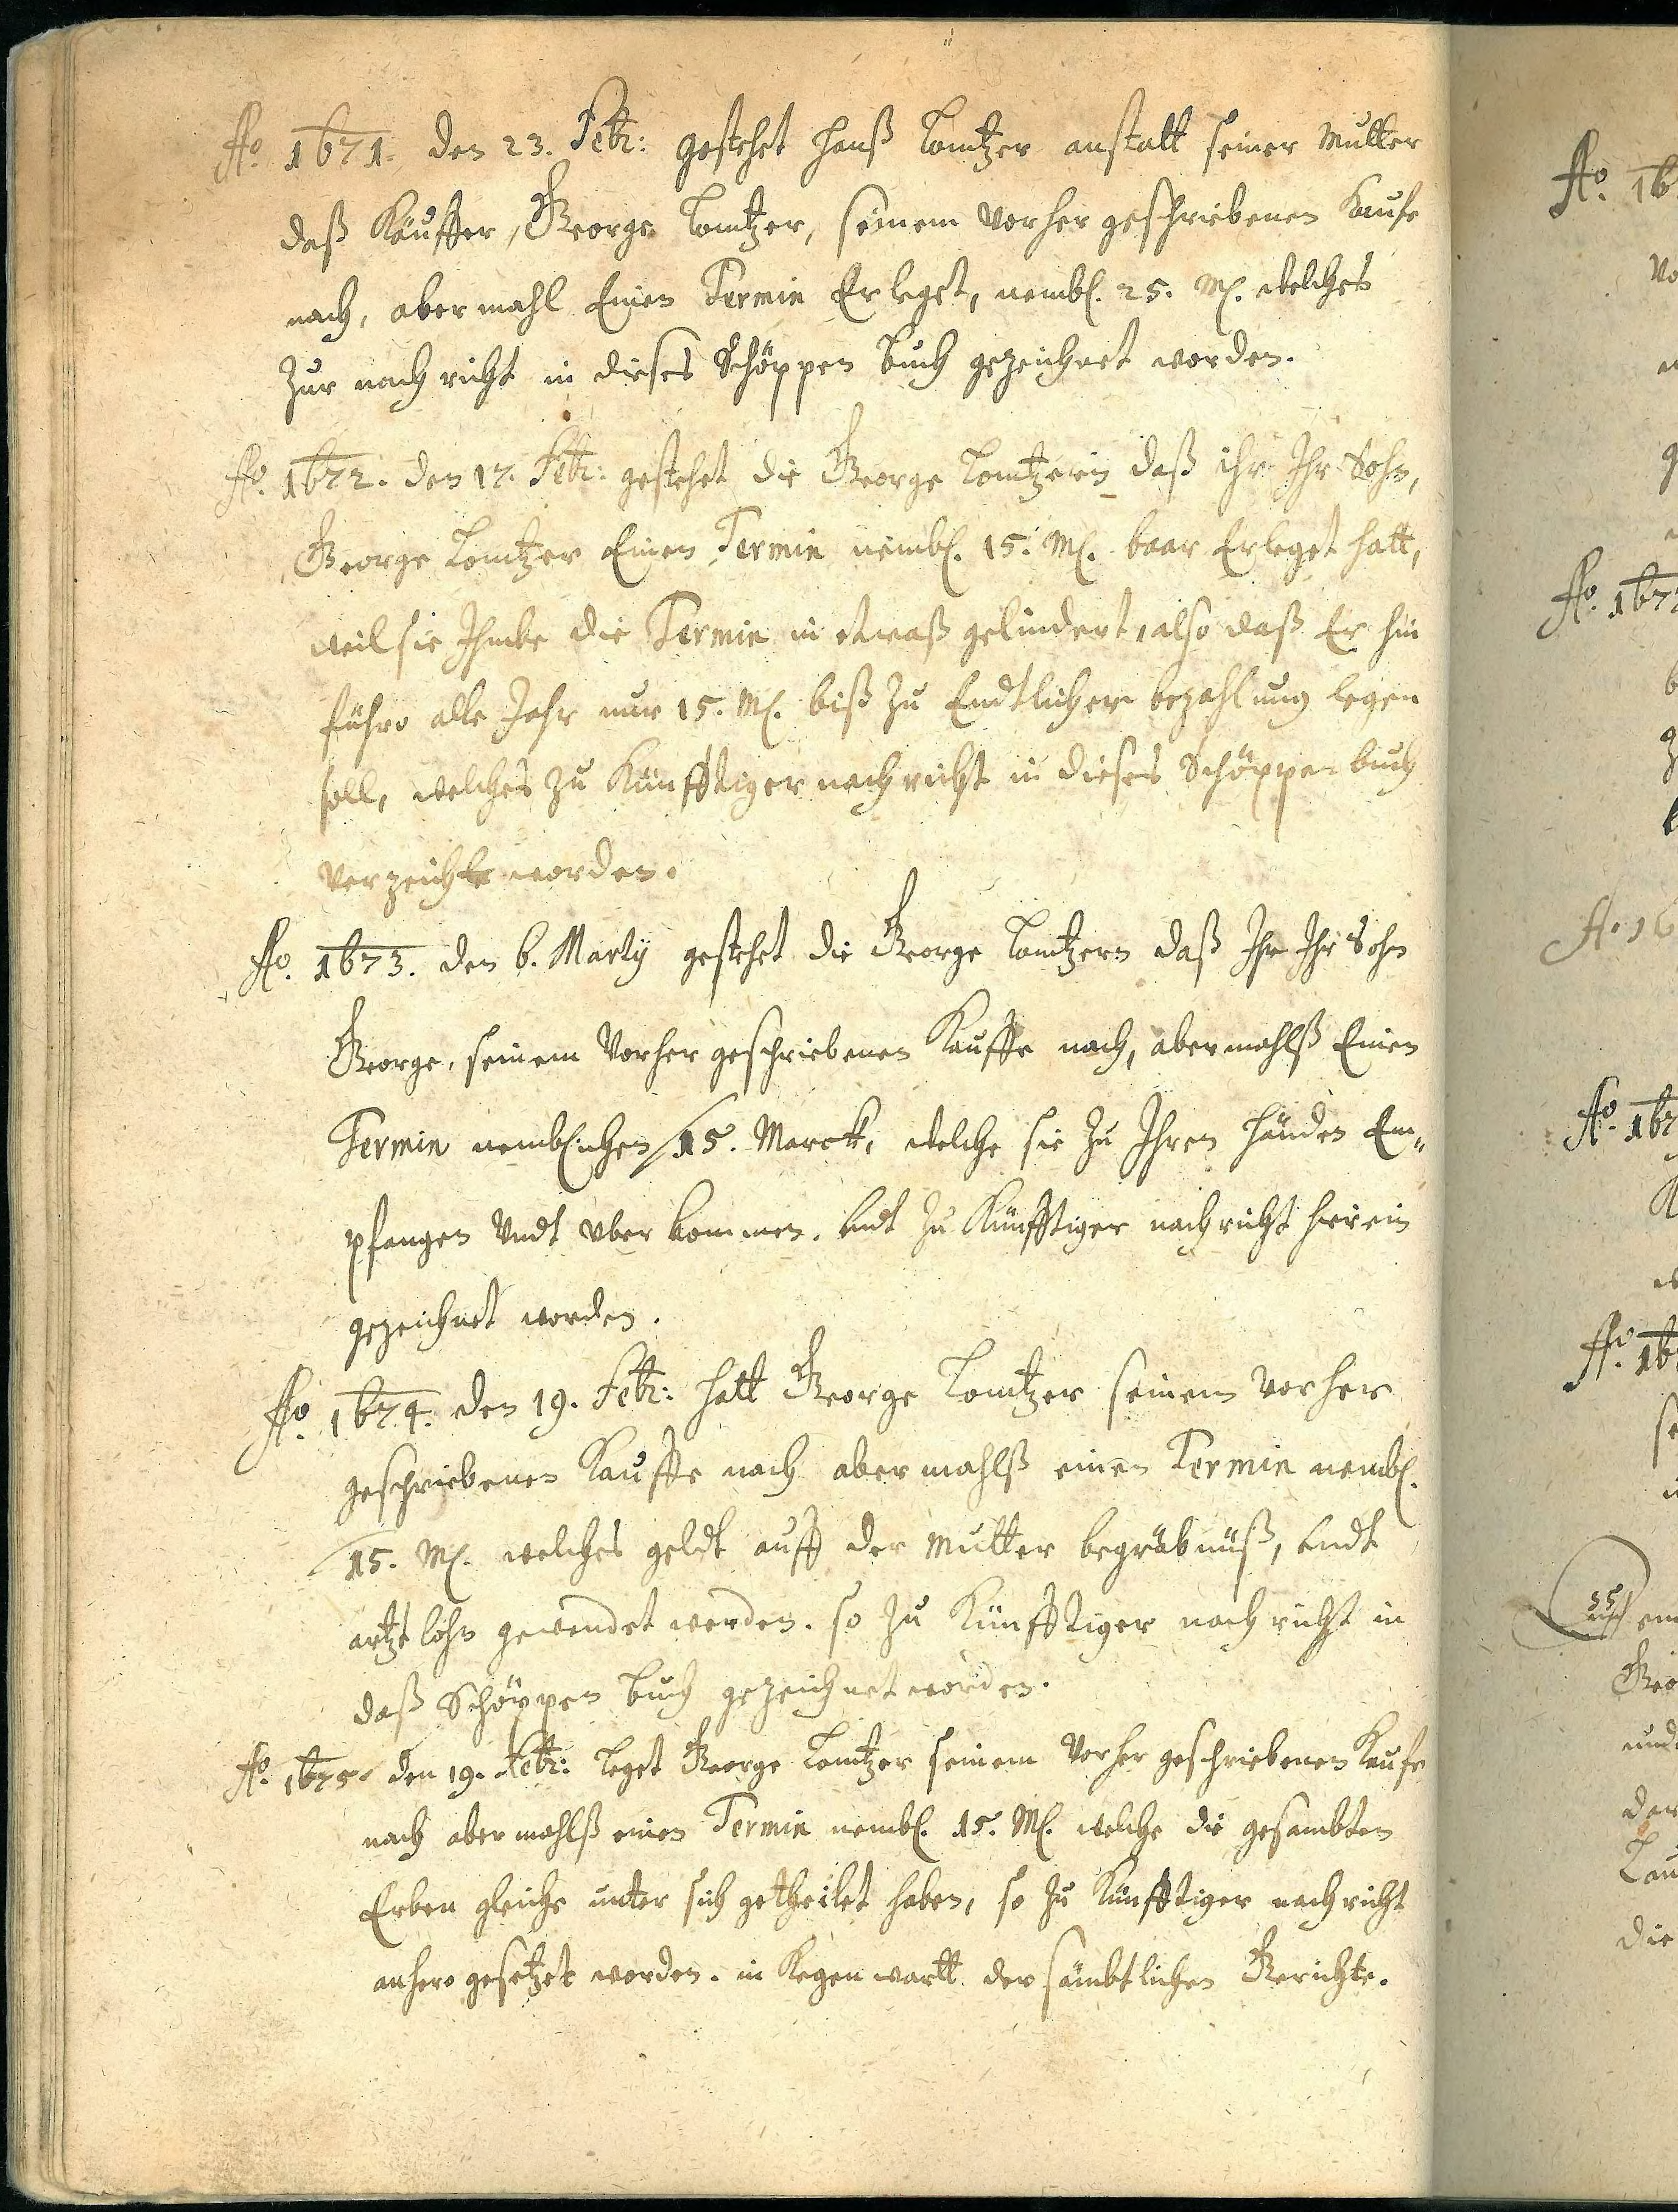 Ao. 1671. den 23. Febr: gestehet Hanß Lomtzer anstatt seiner Mutter
daß Käuffer, George Lomtzer, seinem vorher geschriebenen Kaufe
nach, aber mahl Einen Termin Erleget, nembl. 25. M. welches
Zur nach richt in dieses Schöppen buch gezeichnet worden.
Ao. 1672. den 17. Febr: gestehet die George Lomtzerin daß ihr Ihr Sohn,
George Lomtzer Einen Termin nembl. 15. M. baar Erleget hatt,
weil sie Ihme die Termin in etwaß gelindert, also daß Er hin
führo alle Jahr nur 15. M. biß zu Endtlicher bezahlung legen
soll, welches zu Künfftiger nach richt in dieses Schöppen buch
verzeicht worden.
Ao. 1673. den 6. Martij gestehet die George Lomtzern daß Ihr Ihr Sohn
George, seinem Vorher geschriebenen Kauffe nach, abermahlß Einen
Termin nemblichen 15. Marck, welche sie zu Ihren händen Em„
pfangen Undt uber kommen. Undt zu Künfftiger nach richt hierein
gezeichnet worden.
Ao. 1674. den 19. Febr: hatt George Lomtzer seinem vorher
geschriebenen Kauffe nach aber mahlß einen Termin nembl.
15. M. welches geldt auff der Mutter begräbnüß, Undt
artzt lohn gewendet worden. so zu Künfftiger nach richt in
daß Schöppen buch gezeichnet worden.
Ao. 1675 den 19. Febr: leget George Lomtzer seinem Vorher geschriebenen Kaufe
nach aber mahlß einen Termin nembl. 15. M. welche die gesambten
Erben gleiche unter sich getheilet haben, so zu Künfftiger nach richt
anhero gesetzet worden. in Kegen wartt der sämbtlichen Gerichte.